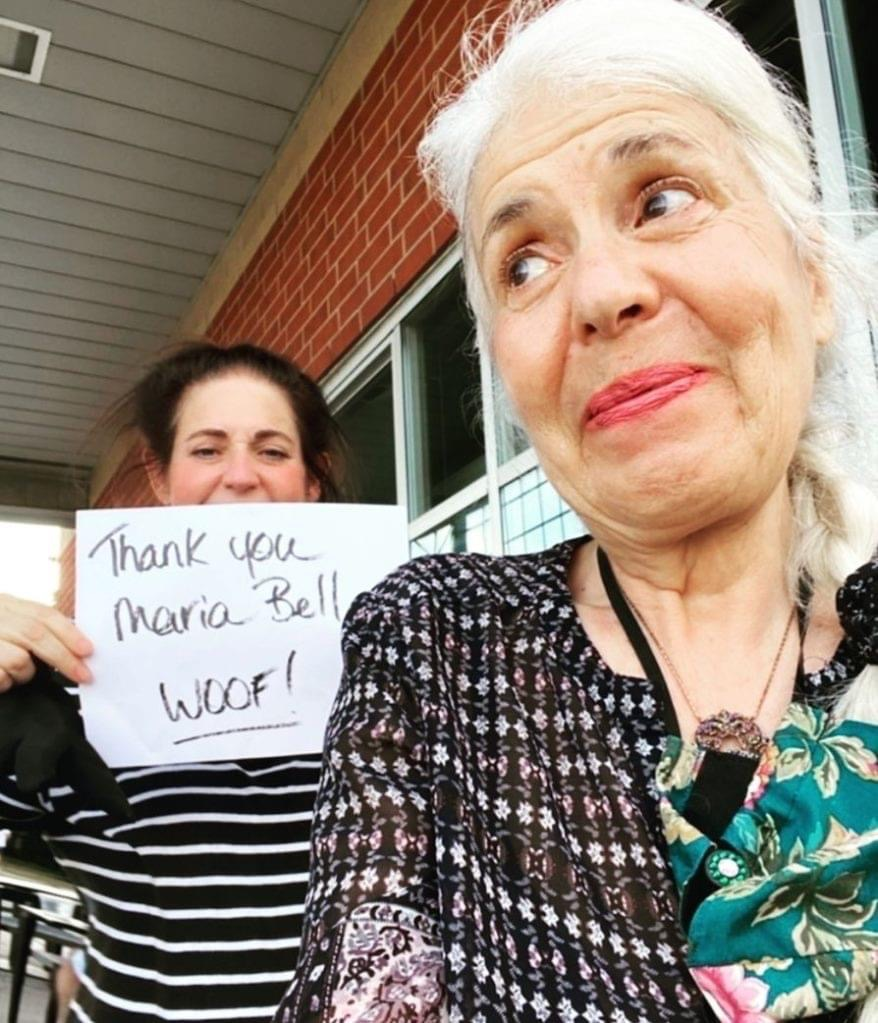 Thank you
Maria Bell
WOOF!